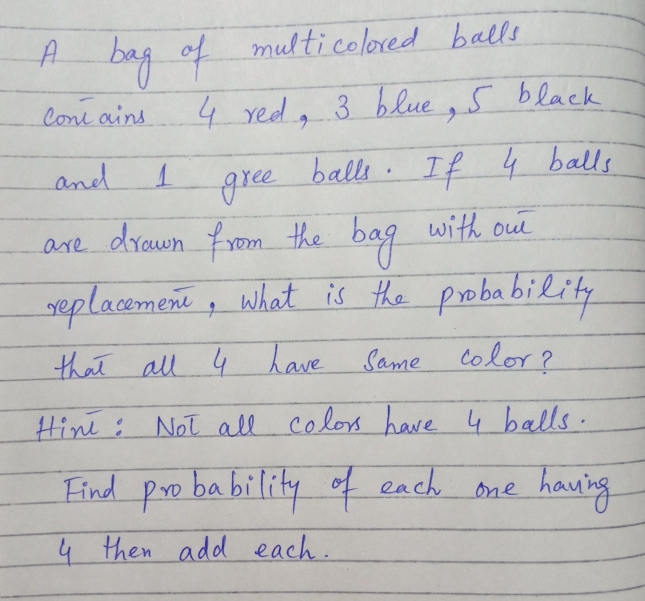 A bag of multicolored balls
contains 4 red, 3 blue, 5 black
and 1 gree balls. If 4 balls
are drawn from the bag with out
replacement, what is the probability
that all 4 have same color?
Hint: Not all colors have 4 balls.
Find probability of each one having
4 then add each.